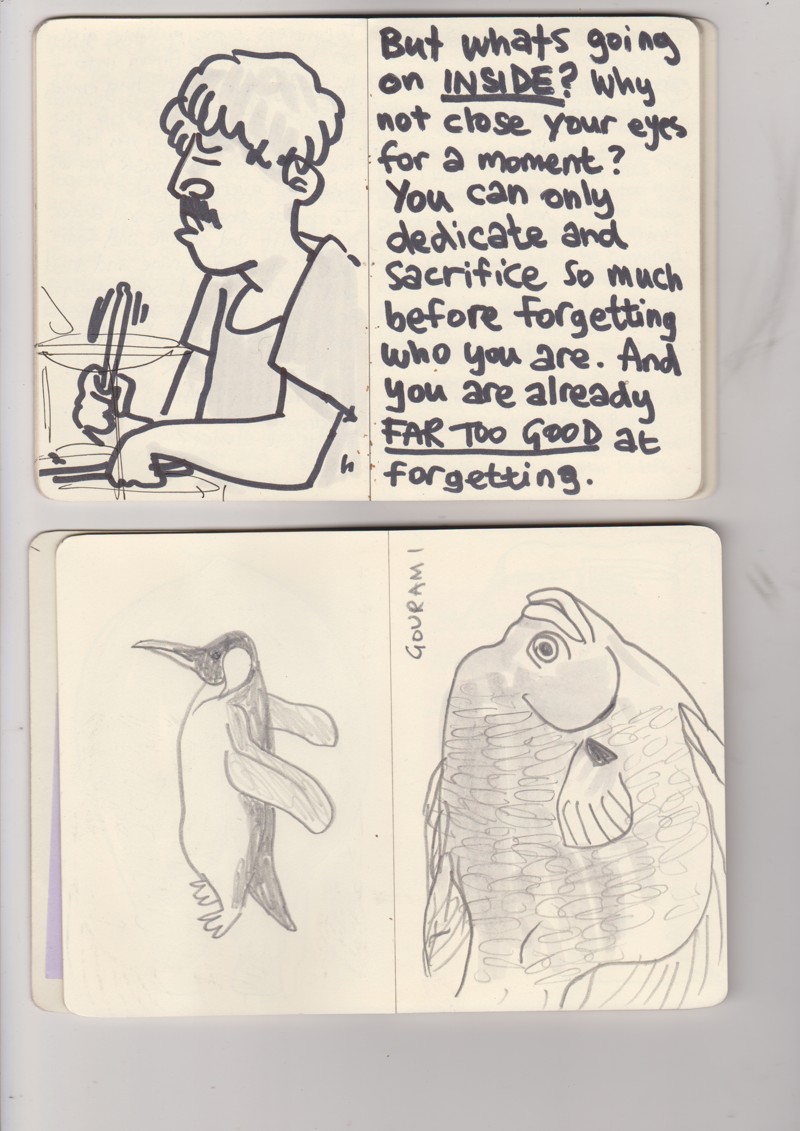 But whats going
on INSIDE? Why
not close your eyes
for a moment?
You can only
dedicate and
sacrifice so much
before forgetting
who you are. And
you are already
FAR TOO GOOD at
forgetting.
GOURAMI